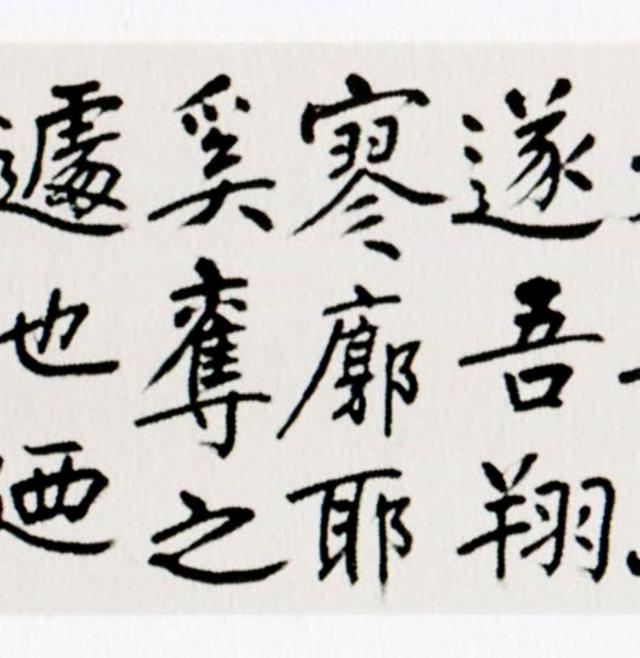 遂吾翔
寥廓耶
奚奪之
遽也迺